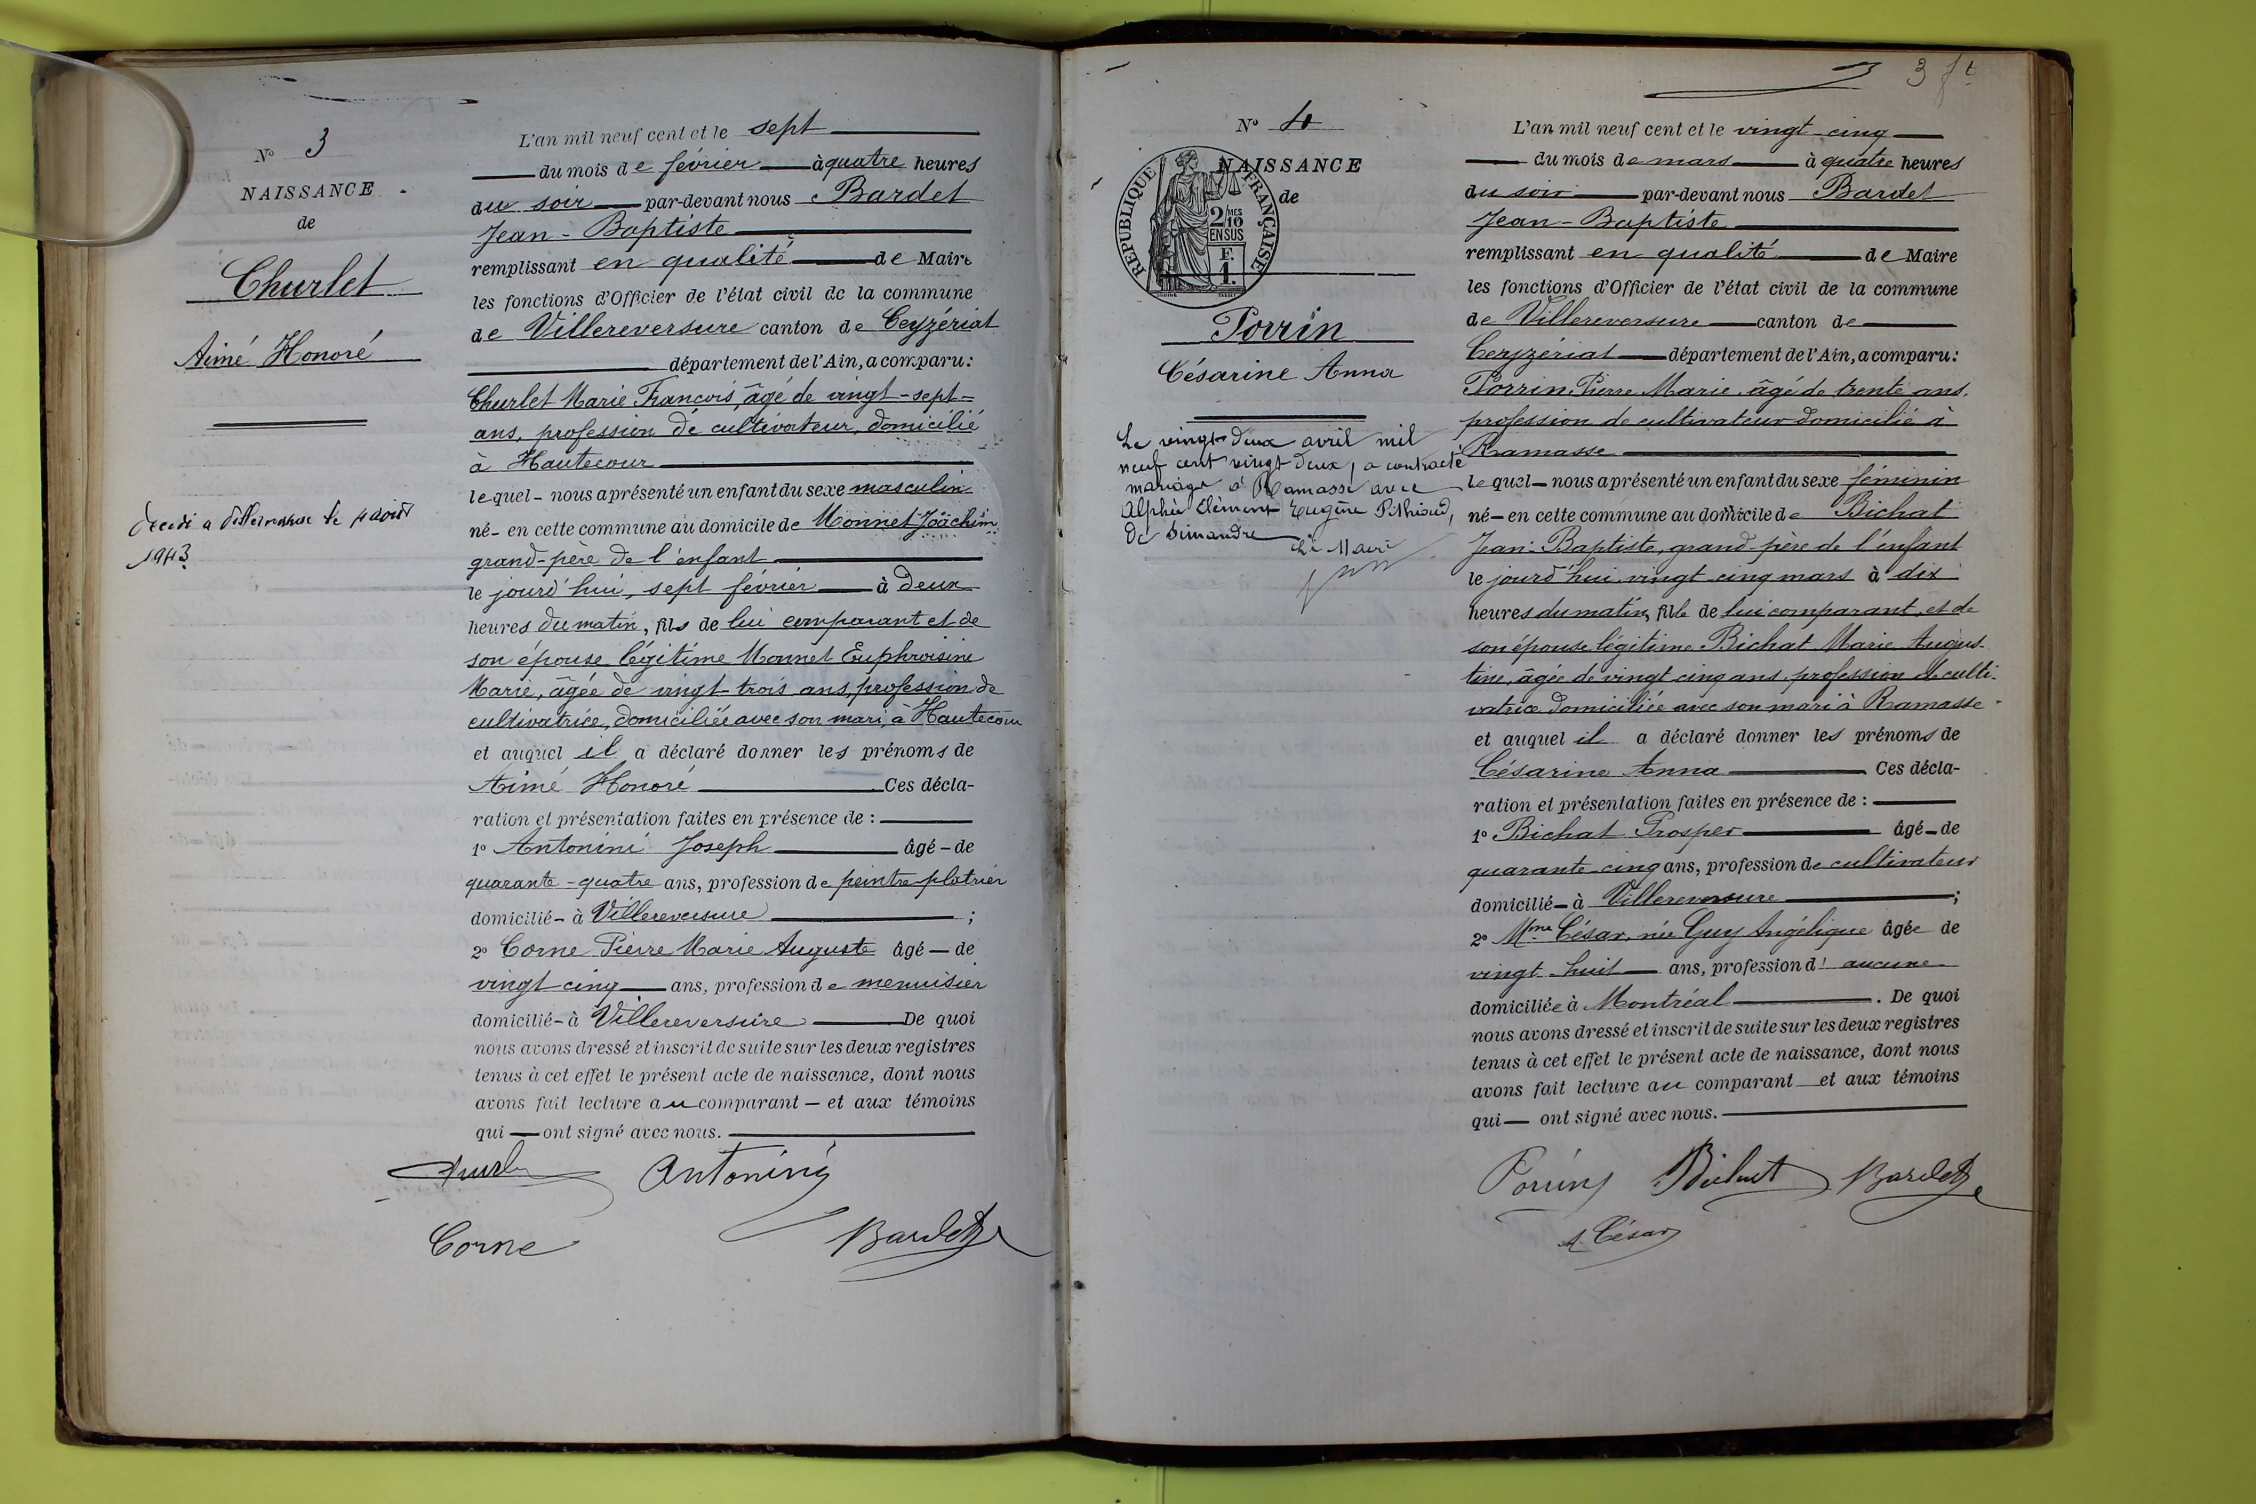 N° 3
NAISSANCE
de
Churlet
Aimé Honoré
décédé à Villereversure le août
1943
L'an mil neuf cent et le sept
du mois de février à quatre heures
du soir par-devant nous Bardet
Jean-Baptiste
remplissant en qualité de Maire
les fonctions d'Officier de l'état civil de la commune
de Villereversure canton de Ceyzériat
département de l'Ain, a comparu:
Churlet Marie François, âgé de vingt-sept-
ans, profession de cultivateur, domicilié
à Hautecour
le quel - nous a présenté un enfant du sexe masculin
né - en cette commune au domicile de Monnet Joachim
grand-père de l'enfant
le jourd'hui, sept février à deux
heures du matin, fils de lui comparant et de
son épouse légitime Monnet Euphroisine
Marie, âgée de vingt-trois ans, profession de
cultivatrice, domiciliée avec son mari, à Hautecour
et auquel il a déclaré donner les prénoms de
Aimé Honoré Ces décla-
ration et présentation faites en présence de :
1° Antonini Joseph âgé - de
quarante-quatre ans, profession de peintre-plâtrier
domicilié - à Villereversure ;
2° Corne Pierre Marie Auguste âgé - de
vingt cinq ans, profession de menuisier
domicilié - à Villereversure De quoi
nous avons dressé et inscrit de suite sur les deux registres
tenus à cet effet le présent acte de naissance, dont nous
avons fait lecture au comparant - et aux témoins
qui - ont signé avec nous.
Churlet Antonini
Corne Bardet
3 ft
N° 4
NAISSANCE
de
RÉPUBLIQUE FRANÇAISE
2/10 MES
EN SUS
F.
1.
Porrin
Césarine Anna
Le vingt-deux avril mil
neuf cent vingt deux, a contracté
mariage à Ramasse avec
Alphée Clément Eugène Pithioud,
de Simandre
Le Maire
L'an mil neuf cent et le vingt-cinq
du mois de mars à quatre heures
du soir par-devant nous Bardet
Jean-Baptiste
remplissant en qualité de Maire
les fonctions d'Officier de l'état civil de la commune
de Villereversure canton de
Ceyzériat département de l'Ain, a comparu:
Porrin Pierre Marie, âgé de trente ans,
profession de cultivateur domicilié à
Ramasse
le quel - nous a présenté un enfant du sexe féminin
né - en cette commune au domicile de Bichat
Jean-Baptiste, grand-père de l'enfant
le jourd'hui vingt cinq mars à dix
heures du matin, fille de lui comparant et de
son épouse légitime Bichat Marie Augus-
tine, âgée de vingt cinq ans, profession de culti-
vatrice domiciliée avec son mari à Ramasse
et auquel il a déclaré donner les prénoms de
Césarine Anna Ces décla-
ration et présentation faites en présence de :
1° Bichat Prosper âgé - de
quarante cinq ans, profession de cultivateur
domicilié - à Villereversure ;
2° Mme César, née Guy Angélique âgée de
vingt-huit ans, profession d' aucune
domiciliée à Montréal . De quoi
nous avons dressé et inscrit de suite sur les deux registres
tenus à cet effet le présent acte de naissance, dont nous
avons fait lecture au comparant et aux témoins
qui - ont signé avec nous.
Porrin Bichat Bardet
A. César